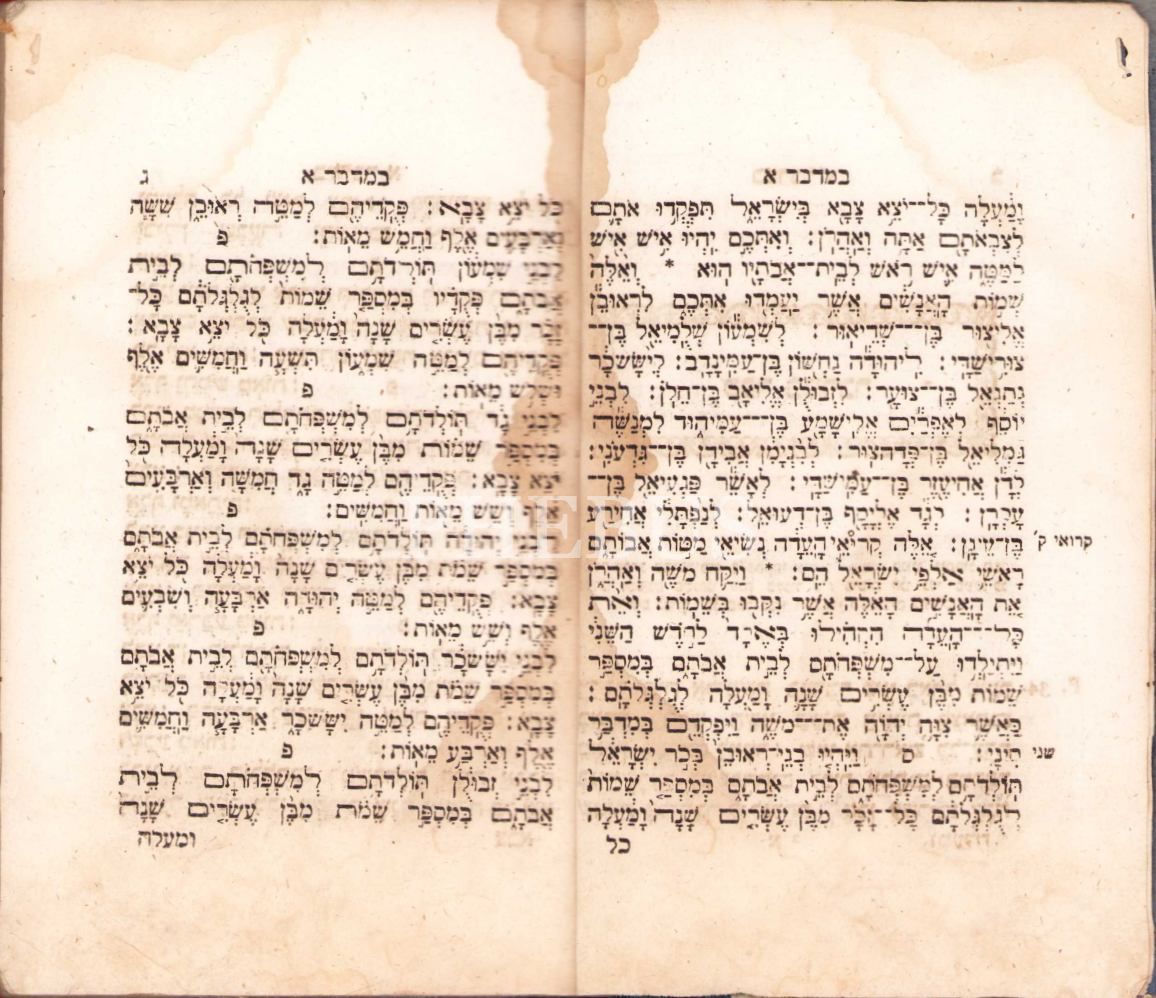 במדבר א
וָמַעְלָה כָּל־־יֹצֵא צָבָא בְּיִשְׂרָאֵל תִּפְקְדוּ אֹתָם
לְצִבְאֹתָם אַתָּה וְאַהֲרֹן: וְאִתְּכֶם יִהְיוּ אִישׁ אִישׁ
לַמַּטֶּה אִישׁ רֹאשׁ לְבֵית־אֲבֹתָיו הוּא * וְאֵלֶּה
שְׁמוֹת הָאֲנָשִׁים אֲשֶׁר יַעַמְדוּ אִתְּכֶם לִרְאוּבֵן
אֱלִיצוּר בֶּן־־־שְׁדֵיאוּר: לְשִׁמְעוֹן שְׁלֻמִיאֵל בֶּן־־
צוּרִישַׁדָּי: לִיהוּדָה נַחְשׁוֹן בֶּן־עַמִּינָדָב: לְיִשָּׂשכָר
נְתַנְאֵל בֶּן־־צוּעָר: לִזְבוּלֻן אֱלִיאָב בֶּן־חֵלֹן: לִבְנֵי
יוֹסֵף לְאֶפְרַיִם אֱלִישָׁמָע בֶּן־־־עַמִּיהוּד לִמְנַשֶּׁה
גַּמְלִיאֵל בֶּן־פְּדָהצוּר: לְבִנְיָמִן אֲבִידָן בֶּן־־גִּדְעֹנִי:
לְדָן אֲחִיעֶזֶר בֶּן־עַמִּישַׁדָּי: לְאָשֵׁר פַּגְעִיאֵל בֶּן־־
עָכְרָן: לְגָד אֶלְיָסָף בֶּן־דְּעוּאֵל: לְנַפְתָּלִי אֲחִירַע
קרואי ק׳
בֶּן־עֵינָן: אֵלֶּה קְרִיאֵי הָעֵדָה נְשִׂיאֵי מַטּוֹת אֲבוֹתָם
רָאשֵׁי אַלְפֵי יִשְׂרָאֵל הֵם: * וַיִּקַּח מֹשֶׁה וְאַהֲרֹן
אֵת הָאֲנָשִׁים הָאֵלֶּה אֲשֶׁר נִקְּבוּ בְּשֵׁמוֹת: וְאֵת
כָּל־־־הָעֵדָה הִקְהִילוּ בְּאֶחָד לַחֹדֶשׁ הַשֵּׁנִי
וַיִּתְיַלְדוּ עַל־־מִשְׁפְּחֹתָם לְבֵית אֲבֹתָם בְּמִסְפַּר
שֵׁמוֹת מִבֶּן עֶשְׂרִים שָׁנָה וָמַעְלָה לְגֻלְגְּלֹתָם:
כַּאֲשֶׁר צִוָּה יְהוָה אֶת־־־מֹשֶׁה וַיִּפְקְדֵם בְּמִדְבַּר
שני
סִינָי: ס וַיִּהְיוּ בְנֵי־רְאוּבֵן בְּכֹר יִשְׂרָאֵל
תּוֹלְדֹתָם לְמִשְׁפְּחֹתָם לְבֵית אֲבֹתָם בְּמִסְפַּר שֵׁמוֹת
לְגֻלְגְּלֹתָם כָּל־־זָכָר מִבֶּן עֶשְׂרִים שָׁנָה וָמַעְלָה
כל
במדבר א ג
כֹּל יֹצֵא צָבָא: פְּקֻדֵיהֶם לְמַטֵּה רְאוּבֵן שִׁשָּׁה
וְאַרְבָּעִים אֶלֶף וַחֲמֵשׁ מֵאוֹת: פ
לִבְנֵי שִׁמְעוֹן תּוֹלְדֹתָם לְמִשְׁפְּחֹתָם לְבֵית
אֲבֹתָם פְּקֻדָיו בְּמִסְפַּר שֵׁמוֹת לְגֻלְגְּלֹתָם כָּל־
זָכָר מִבֶּן עֶשְׂרִים שָׁנָה וָמַעְלָה כֹּל יֹצֵא צָבָא:
פְּקֻדֵיהֶם לְמַטֵּה שִׁמְעוֹן תִּשְׁעָה וַחֲמִשִּׁים אֶלֶף
וּשְׁלֹשׁ מֵאוֹת: פ
לִבְנֵי גָד תּוֹלְדֹתָם לְמִשְׁפְּחֹתָם לְבֵית אֲבֹתָם
בְּמִסְפַּר שֵׁמוֹת מִבֶּן עֶשְׂרִים שָׁנָה וָמַעְלָה כֹּל
יֹצֵא צָבָא: פְּקֻדֵיהֶם לְמַטֵּה גָד חֲמִשָּׁה וְאַרְבָּעִים
אֶלֶף וְשֵׁשׁ מֵאוֹת וַחֲמִשִּׁים: פ
לִבְנֵי יְהוּדָה תּוֹלְדֹתָם לְמִשְׁפְּחֹתָם לְבֵית אֲבֹתָם
בְּמִסְפַּר שֵׁמֹת מִבֶּן עֶשְׂרִים שָׁנָה וָמַעְלָה כֹּל יֹצֵא
צָבָא: פְּקֻדֵיהֶם לְמַטֵּה יְהוּדָה אַרְבָּעָה וְשִׁבְעִים
אֶלֶף וְשֵׁשׁ מֵאוֹת: פ
לִבְנֵי יִשָּׂשכָר תּוֹלְדֹתָם לְמִשְׁפְּחֹתָם לְבֵית אֲבֹתָם
בְּמִסְפַּר שֵׁמֹת מִבֶּן עֶשְׂרִים שָׁנָה וָמַעְלָה כֹּל יֹצֵא
צָבָא: פְּקֻדֵיהֶם לְמַטֵּה יִשָּׂשכָר אַרְבָּעָה וַחֲמִשִּׁים
אֶלֶף וְאַרְבַּע מֵאוֹת: פ
לִבְנֵי זְבוּלֻן תּוֹלְדֹתָם לְמִשְׁפְּחֹתָם לְבֵית
אֲבֹתָם בְּמִסְפַּר שֵׁמֹת מִבֶּן עֶשְׂרִים שָׁנָה
ומעלה